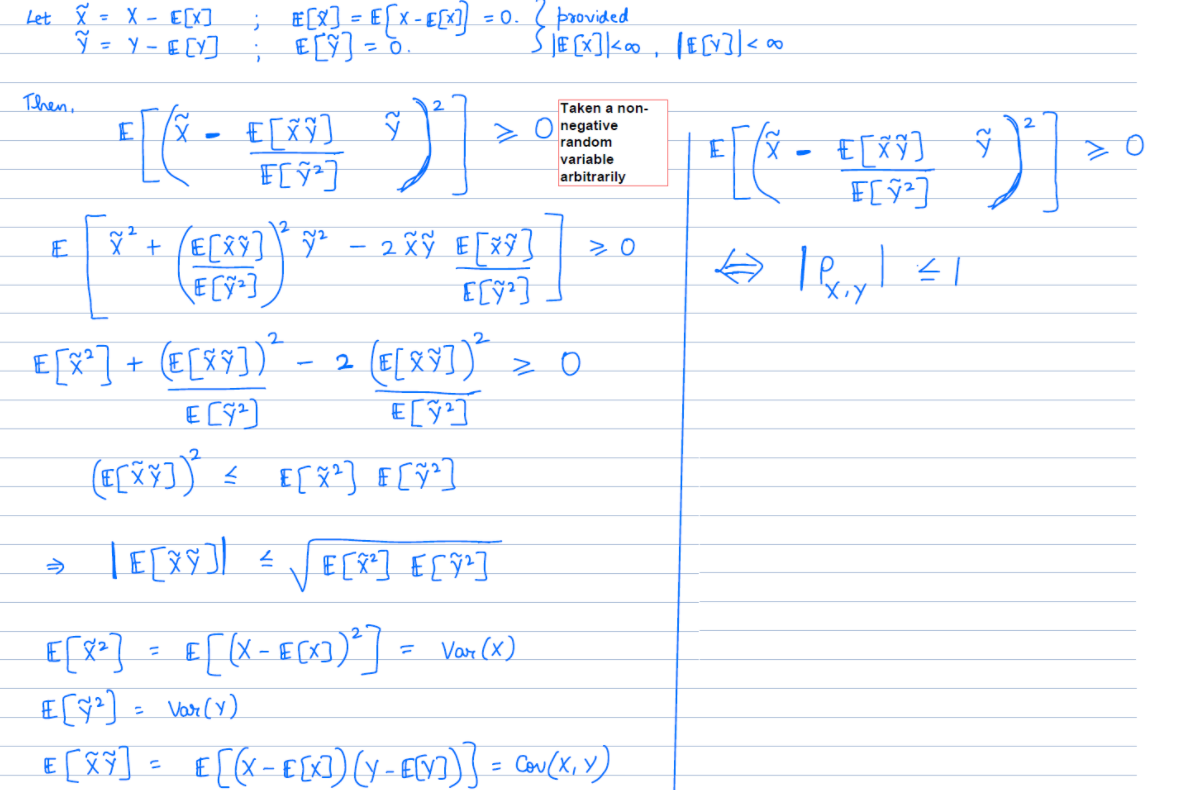 Let X̃ = X - E[X] ; E[X̃] = E[X - E[X]] = 0. } provided
Ỹ = Y - E[Y] ; E[Ỹ] = 0. } |E[X]| < ∞, |E[Y]| < ∞
Then,
E[(X̃ - E[X̃Ỹ]/E[Ỹ²] Ỹ)²] ≥ 0
Taken a non-
negative
random
variable
arbitrarily
E[X̃² + (E[X̃Ỹ]/E[Ỹ²])² Ỹ² - 2X̃Ỹ E[X̃Ỹ]/E[Ỹ²]] ≥ 0
E[X̃²] + (E[X̃Ỹ])²/E[Ỹ²] - 2 (E[X̃Ỹ])²/E[Ỹ²] ≥ 0
(E[X̃Ỹ])² ≤ E[X̃²] E[Ỹ²]
⇒ |E[X̃Ỹ]| ≤ √(E[X̃²] E[Ỹ²])
E[X̃²] = E[(X - E[X])²] = Var(X)
E[Ỹ²] = Var(Y)
E[X̃Ỹ] = E[(X - E[X])(Y - E[Y])] = Cov(X, Y)
E[(X̃ - E[X̃Ỹ]/E[Ỹ²] Ỹ)²] ≥ 0
⇔ |ρ_X,Y| ≤ 1